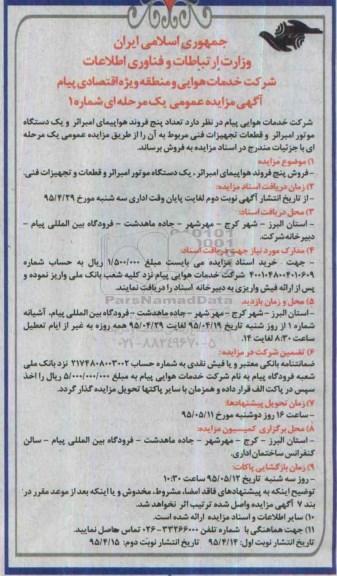 جمهوری اسلامی ایران
وزارت ارتباطات و فناوری اطلاعات
شرکت خدمات هوایی و منطقه ویژه اقتصادی پیام
آگهی مزایده عمومی یک مرحله ای شماره ۱
شرکت خدمات هوایی پیام در نظر دارد تعداد پنج فروند هواپیمای امبرائر و یک دستگاه
موتور امبرائر و قطعات تجهیزات فنی مربوط به آن را از طریق مزایده عمومی یک مرحله
ای با جزئیات مندرج در اسناد مزایده به فروش برساند.
۱) موضوع مزایده
- فروش پنج فروند هواپیمای امبرائر ، یک دستگاه موتور امبرائر و قطعات و تجهیزات فنی.
۲) زمان دریافت اسناد مزایده:
- از تاریخ انتشار آگهی نوبت دوم لغایت پایان وقت اداری سه شنبه مورخ ۹۵/۴/۲۹
۳) محل دریافت اسناد:
- استان البرز - شهر کرج - مهرشهر - جاده ماهدشت - فرودگاه بین المللی پیام -
دبیرخانه شرکت.
۴) مدارک مورد نیاز جهت دریافت اسناد:
- جهت خرید اسناد مزایده می بایست مبلغ ۱/۵۰۰/۰۰۰ ریال به حساب شماره
۴۰۰۱۰۴۸۰۰۴۰۱۰۶۰۹ شرکت خدمات هوایی پیام نزد کلیه شعب بانک ملی واریز نموده و
پس از ارائه فیش واریزی به دبیرخانه اسناد را دریافت نمایند.
۵) محل و زمان بازدید:
- استان البرز - شهر کرج - مهر شهر - جاده ماهدشت - فرودگاه بین المللی پیام، آشیانه
شماره ۱ از روز شنبه تاریخ ۹۵/۰۴/۱۹ لغایت ۹۵/۰۴/۲۹ همه روزه به غیر از ایام تعطیل
ساعت ۸:۳۰ لغایت ۱۴.
۶) تضمین شرکت در مزایده:
ضمانتنامه بانکی معتبر و یا فیش نقدی به شماره حساب ۲۱۷۴۸۰۸۰۰۳۰۰۲ نزد بانک ملی
شعبه فرودگاه پیام به نام شرکت خدمات هوایی پیام به مبلغ ۵/۰۰۰/۰۰۰/۰۰۰ ریال را اخذ
سپس در پاکت الف قرار داده و همزمان با سایر پاکتها تحویل مزایده گذار گردد.
۷) زمان تحویل پیشنهادها:
- ساعت ۱۶ روز دوشنبه مورخ ۹۵/۰۵/۱۱
۸) محل برگزاری کمیسیون مزایده:
- استان البرز - کرج - مهرشهر - جاده ماهدشت - فرودگاه بین المللی پیام - سالن
کنفرانس ساختمان اداری.
۹) زمان بازگشایی پاکات:
- روز سه شنبه تاریخ ۹۵/۰۵/۱۲ ساعت ۱۰:۳۰
توضیح اینکه به پیشنهادهای فاقد امضا، مشروط، مخدوش و یا اینکه بعد از موعد مقرر در
بند ۷ آگهی مزایده واصل شده ترتیب اثر نخواهد شد.
۱۰) سایر اطلاعات و اسناد مزایده ارائه شده است.
۱۱) جهت هماهنگی با شماره تلفن ۳۳۲۶۶۰۰۰-۰۲۶ تماس حاصل نمایید.
تاریخ انتشار نوبت اول: ۹۵/۴/۱۴ تاریخ انتشار نوبت دوم: ۹۵/۴/۱۵
ParsNamadData
۰۲۱-۸۸۳۴۹۶۷۰-۵